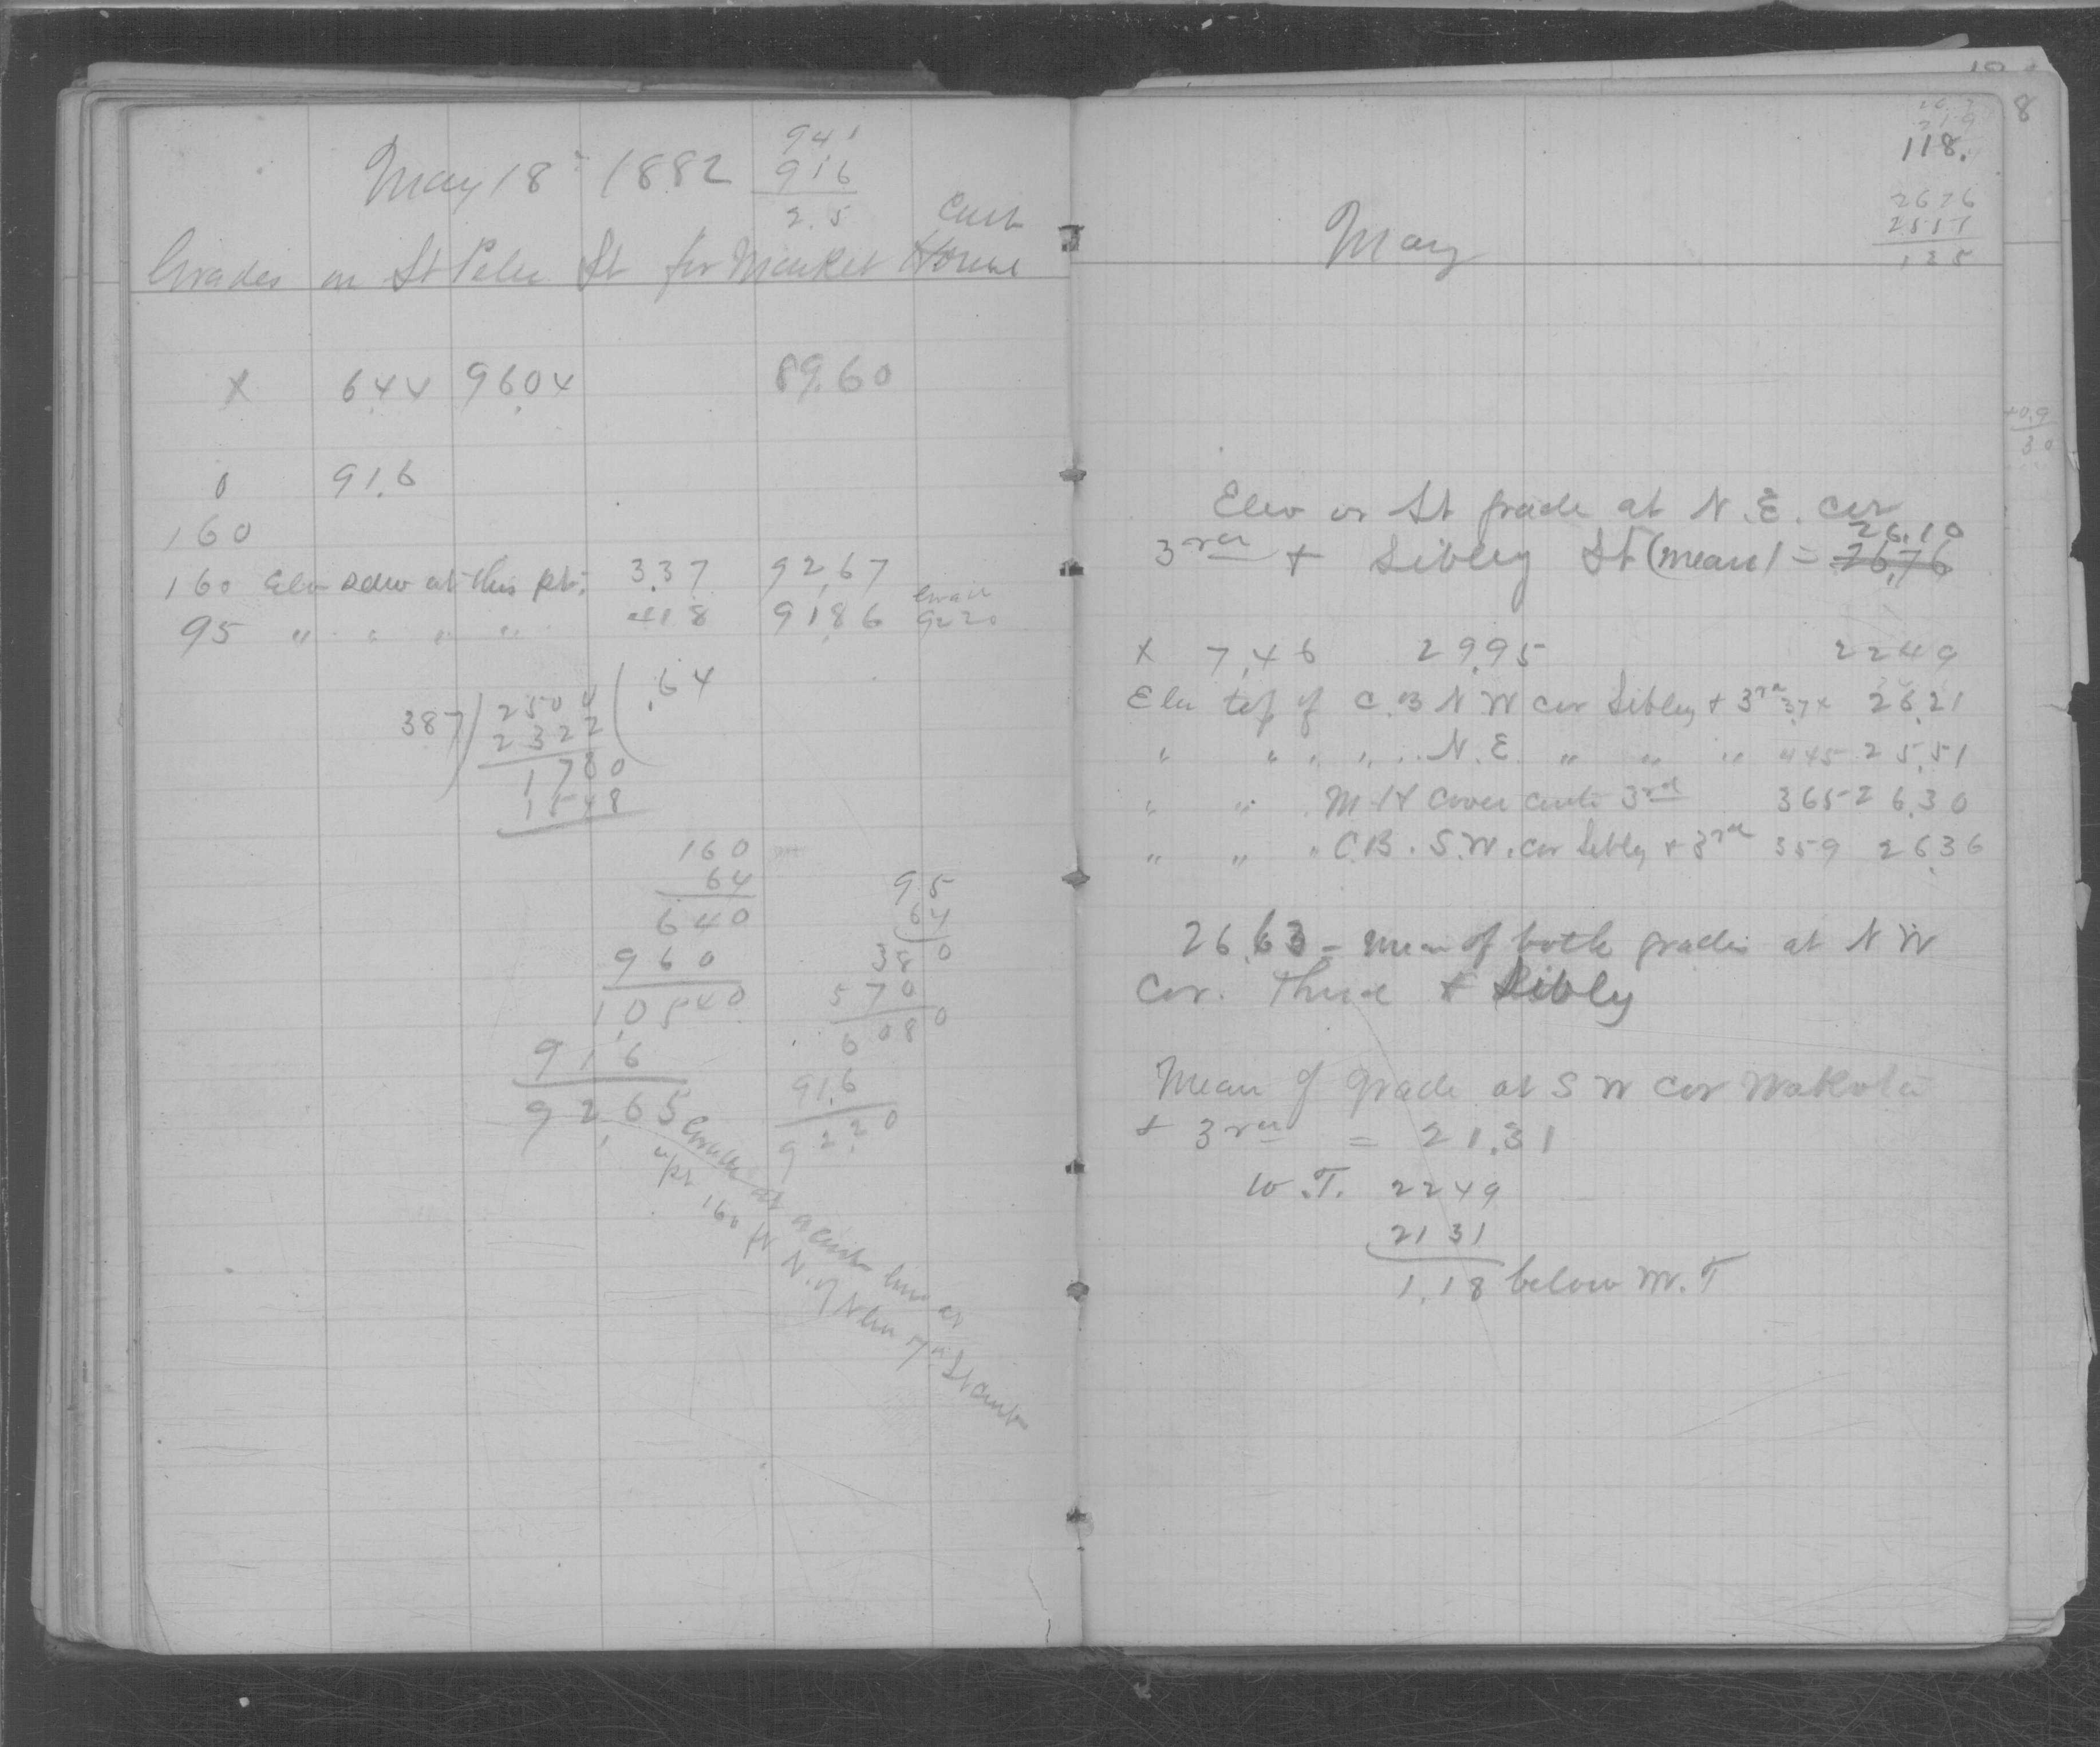 941
May 18 1882 916
2.5
Curb
Grades on St Peter St for Market House
x 6.44 96.04 89.60
0 91.6
160
160 Elv sdw at this pt. 3.37 92.67
95 " " " " 418 91.86 Grade 92 20
387 ) 2504 ( .64
2322
1780
1548
160
64
640
960
10540
916
9265
95
64
380
570
6080
91.6
92.20
Grade at curb line at
pt 160 ft N. of N line 7th St
118.
2676
2551
125
May
Elev or St grade at N.E. cor
26.10
3rd + Sibley St (mean) = 26.76
x 7.46 29.95 2249
Elv top of C.B N W cor Sibley + 3rd 374 26.21
" " " " N.E. " " " 445 25.51
" " M H cover cent 3rd 365 26.30
" " " C.B. S.W. cor Sibley + 3rd 359 26.36
26.63 = mean of both grades at N W
Cor. Third + Sibley
Mean of grade at S W cor Wakota
+ 3rd = 21.31
W.T. 2249
2131
1.18 below W.T
8
30